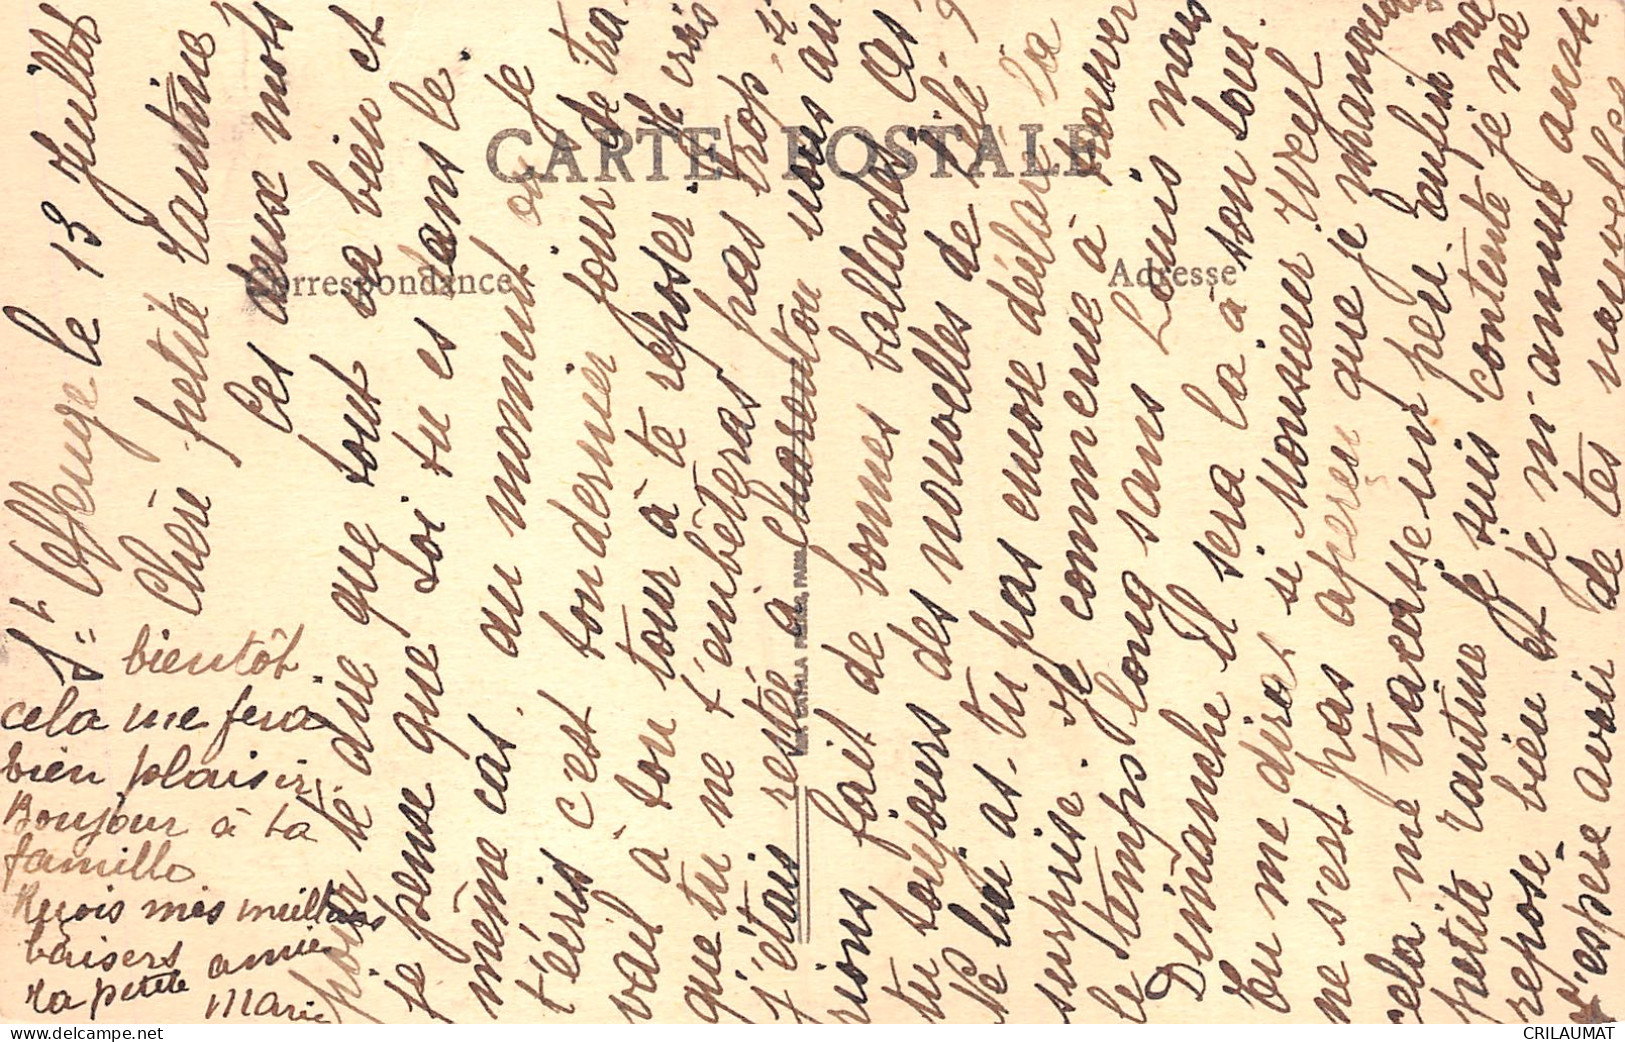 CARTE POSTALE
Correspondance
Adresse
le 13 Juillet
Chère petite Tantine
Ces deux mots
pour te dire que tout va bien et
je pense que toi tu es dans le
même cas. au moment ou je
t'écris c'est ton dernier jour de tra-
vail à ton tour à te reposer. Je crois
que tu ne t'embêteras pas trop. si
j'étais resté à Charenton nous au
rions fait de bonnes ballades. As
tu toujours des nouvelles de Féli-
Ne lui as-tu pas encore déclaré ta
surprise. Je commence à trouver
le temps long sans Louis mais
Dimanche Il sera là à son tour.
Tu me diras si Monsieur
ne s'est pas aperçu que je manquais
cela me tracasse un peu. Enfin ma
petite Tantine Je suis contente je me
repose bien et je m'amuse aussi
J'espère avoir de tes nouvelles
bientôt.
cela me fera
bien plaisir.
Bonjour à ta
famille
Reçois mes meilleurs
baisers
ta petite amie
Marie
CRILAUMAT